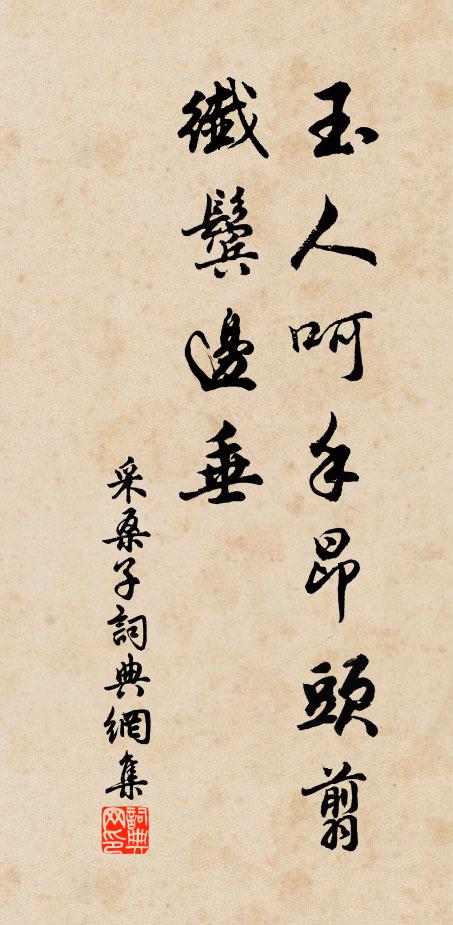 玉人呵手昂頭翦
纖鬢邊垂
采桑子詞典網集
詞典网印